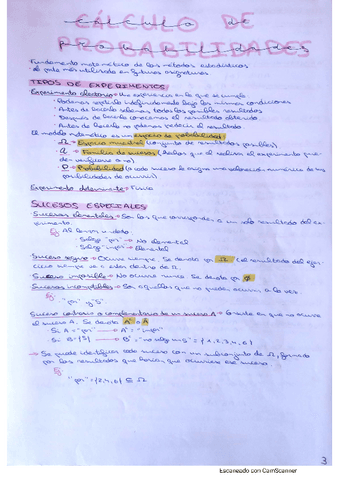 CÁLCULO DE
PROBABILIDADES
Fundamento matemático de los métodos estadísticos
asignaturas
TIPOS DE EXPERIMENTOS:
Experimento aleatorio: Una experiencia en la que se cumple
- Podemos repetirlo indefinidamente bajo las mismas condiciones
- Antes de hacerlo sabemos todos los posibles resultados
- Después de hacerlo conocemos el resultado obtenido
- Antes de hacerlo no podemos predecir el resultado
El modelo matemático es un espacio de probabilidad
Ω → Espacio muestral (conjunto de resultados posibles)
a → Familia de sucesos (Hechos que al realizar el experimento pueden
verificarse o no)
P → Probabilidad (a cada suceso le asigna una valoración numérica de sus
posibilidades de ocurrir)
Experimento determinista: Física
SUCESOS ESPECIALES
Sucesos elementales → Son los que corresponden a un solo resultado del experimento.
Ej Al lanzar un dado.
- Salga "par" → No elemental
- Salga → Elemental
Suceso seguro → Ocurre siempre. Se denota por Ω (el resultado del ejercicio
siempre va a estar dentro de Ω.
Suceso imposible → No ocurre nunca. Se denota por ø
Sucesos incompatibles → Son aquellos que no pueden ocurrir a la vez.
Ej
"par" y "5"
Suceso contrario o complementario de un suceso A → Consiste en que no ocurre
el suceso A. Se denota
Si A = "par" → A' = "impar"
Si B = {5} → B' = "no salga un 5" = {1,2,3,4,6}
→ Se puede identificar cada suceso con un subconjunto de Ω, formado
por los resultados que harían que ocurriese ese suceso.
Ej
"par" = {2,4,6} ⊆ Ω
3
Escaneado con CamScanner